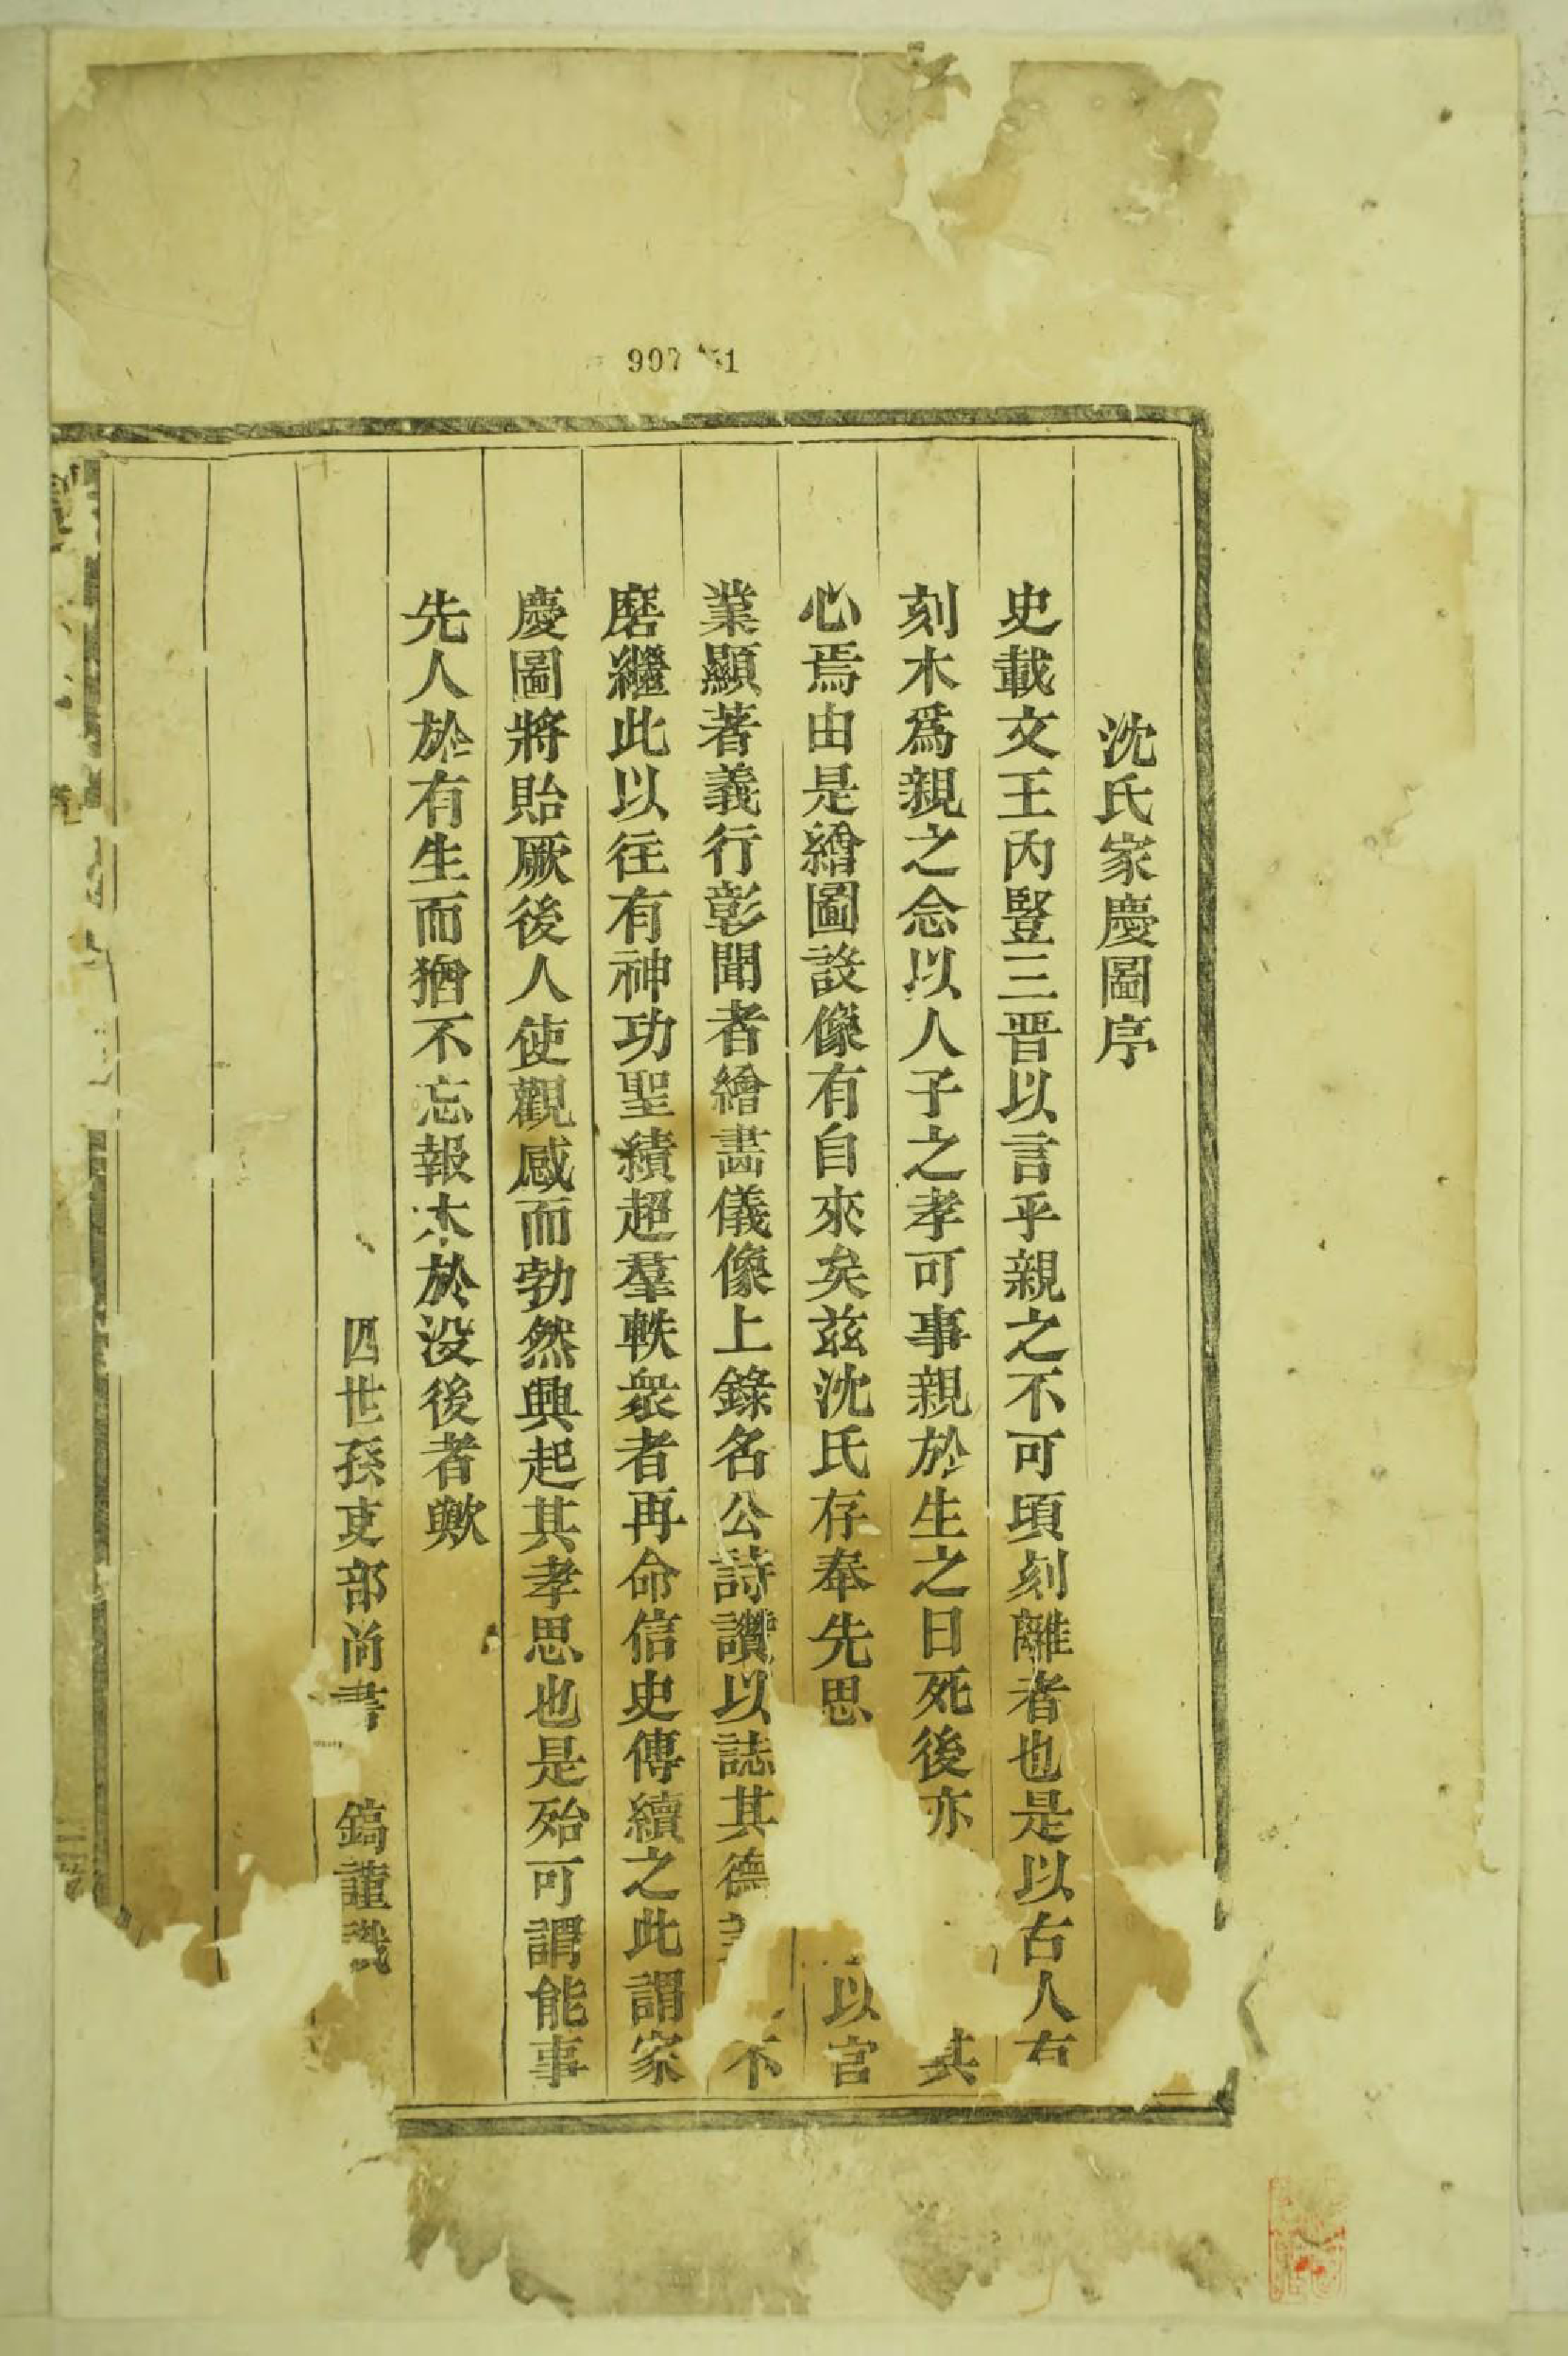 沈氏家慶圖序
史載文王內豎三晋以言乎親之不可頃刻離者也是以古人有
刻木爲親之念以人子之孝可事親於生之日死後亦其
心焉由是繪圖設像有自來矣兹沈氏存奉先思以官
業顯著義行彰聞者繪畵儀像上錄名公詩讚以誌其德不
磨繼此以徃有神功聖績超羣軼衆者再命信史傳續之此謂家
慶圖將貽厥後人使觀感而勃然興起其孝思也是殆可謂能事
先人於有生而猶不忘報本於没後者歟
四世孫吏部尚書 鎬謹識